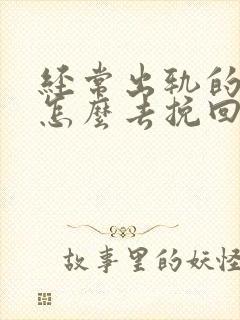 经常出轨的
怎麼去挽回
故事里的妖怪